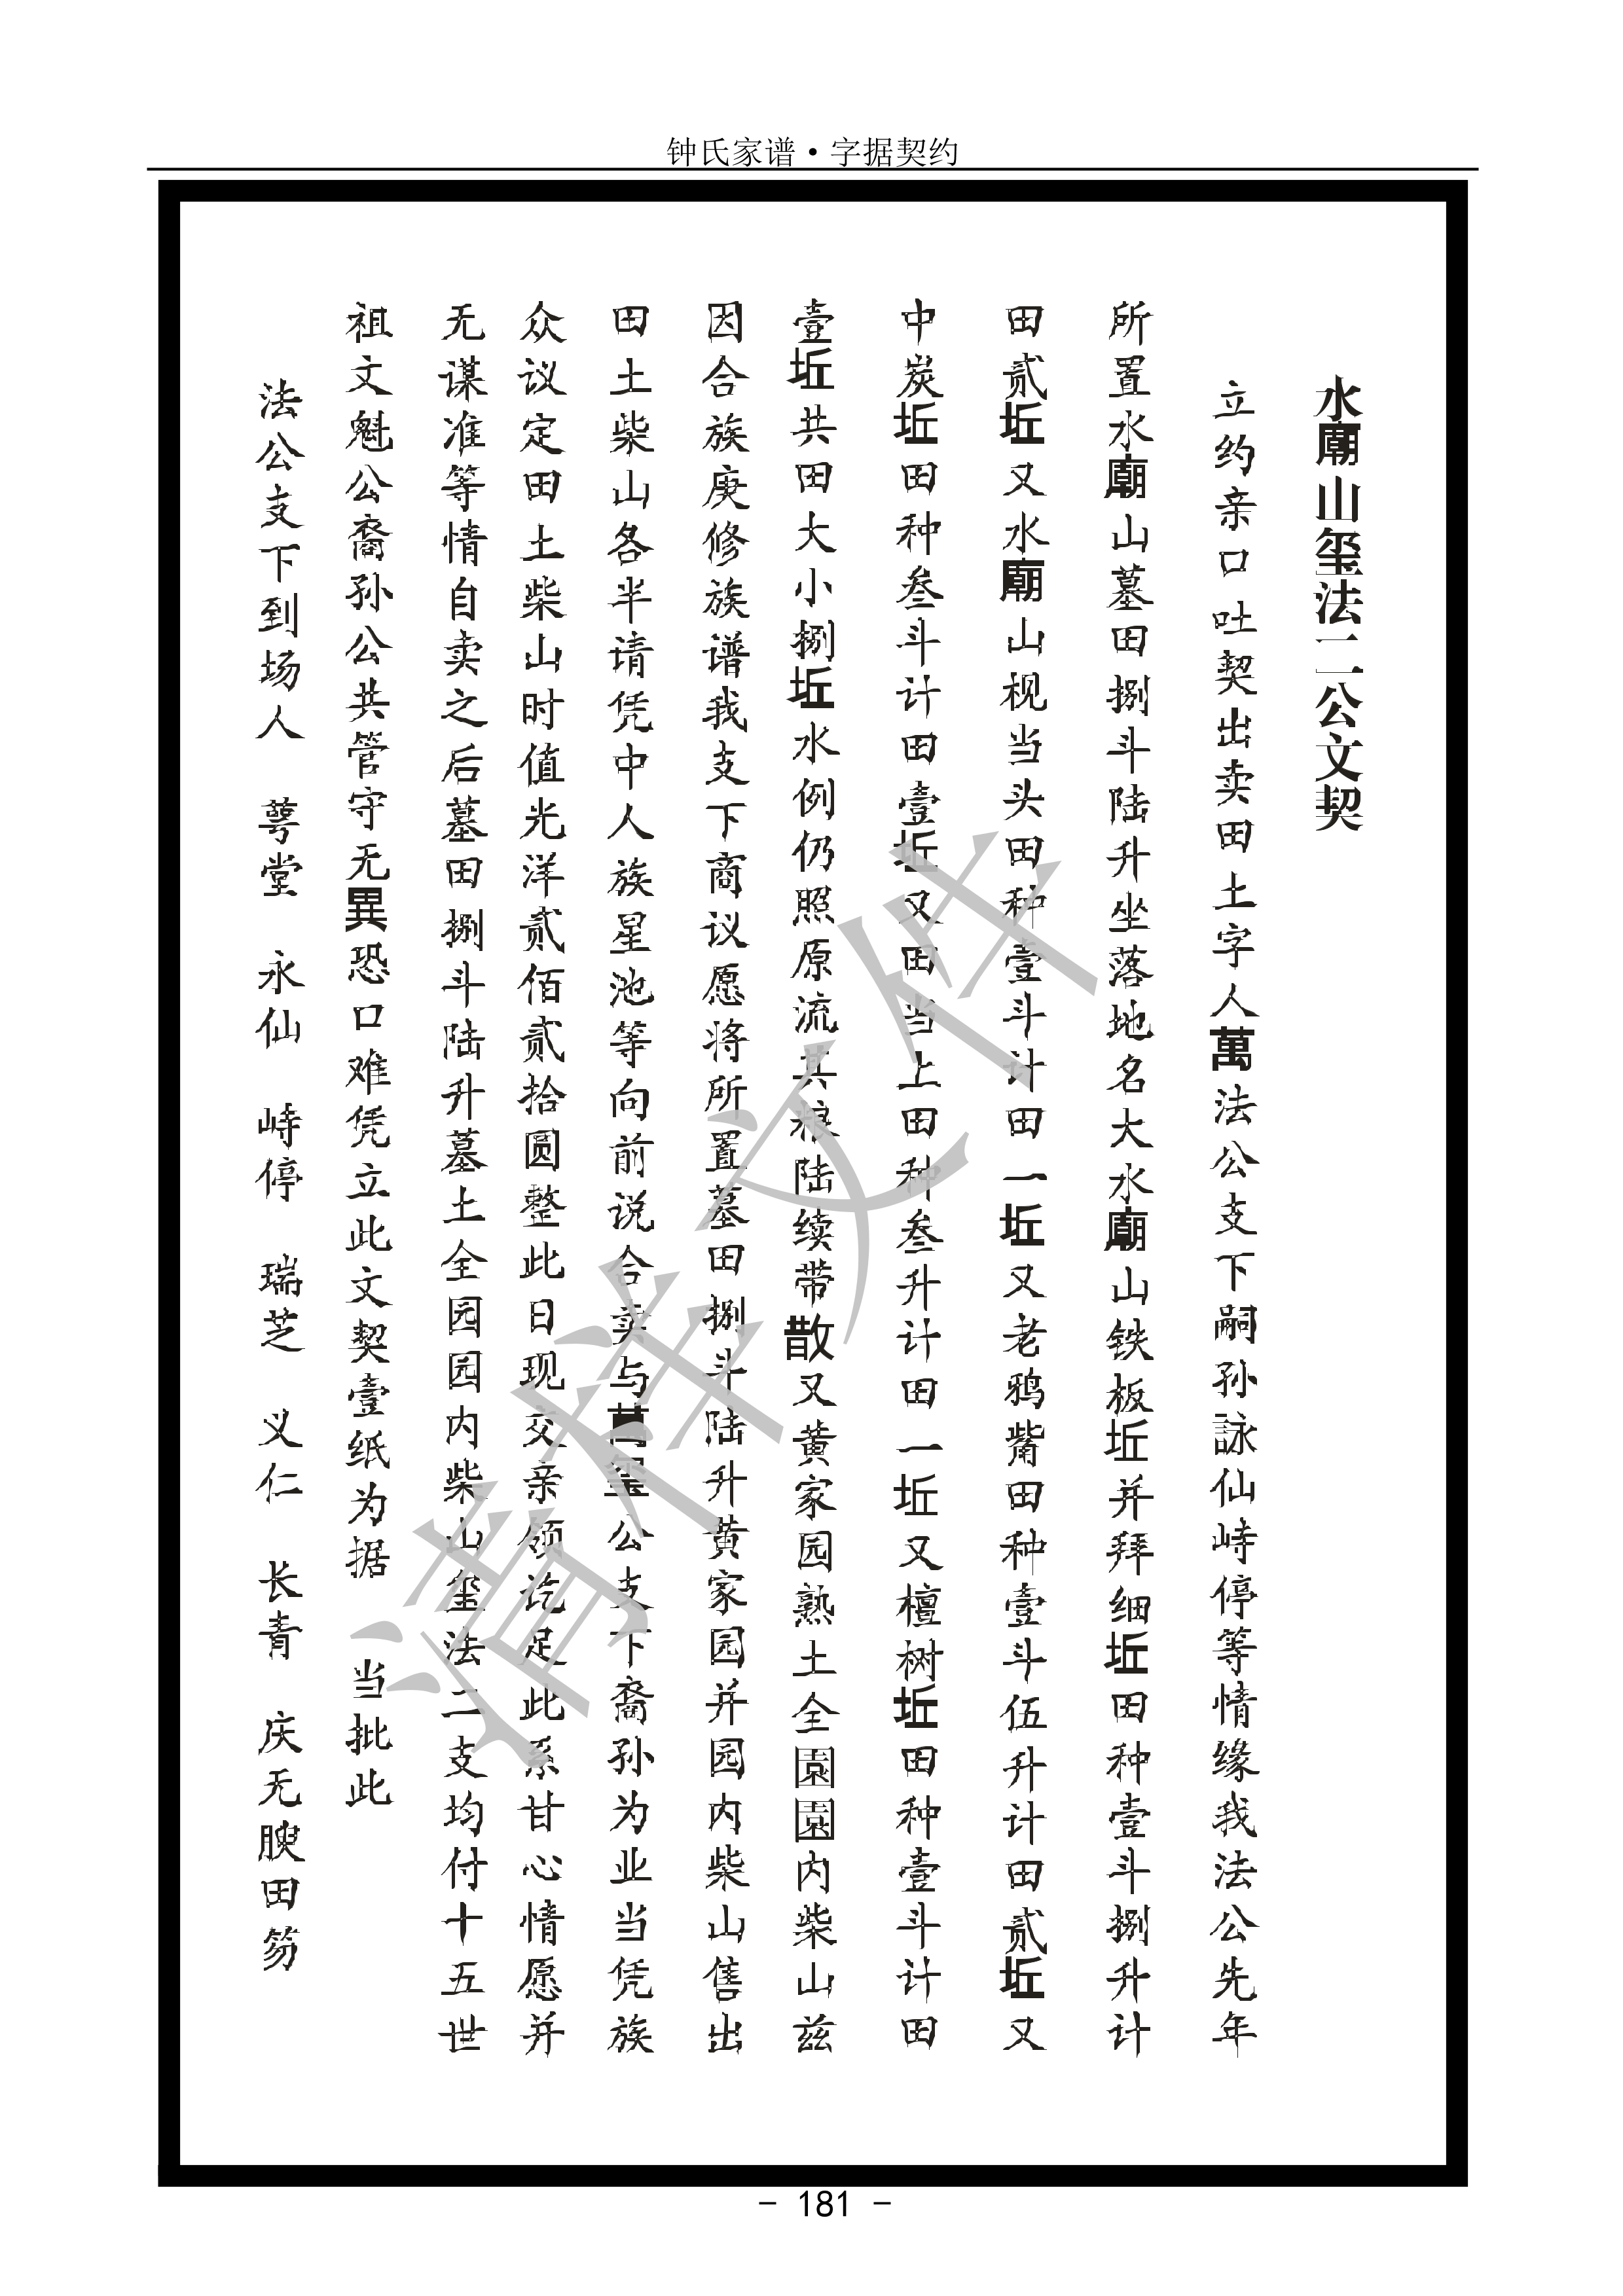 钟氏家谱·字据契约
水廟山玺法二公文契
立约亲口吐契出卖田土字人萬法公支下嗣孙詠仙峙停等情缘我法公先年
所置水廟山墓田捌斗陆升坐落地名大水廟山铁板坵并拜细坵田种壹斗捌升计
田贰坵又水廟山枧当头田种壹斗计田一坵又老鸦觜田种壹斗伍升计田贰坵又
中炭坵田种叁斗计田壹坵又田当上田种叁升计田一坵又檀树坵田种壹斗计田
壹坵共田大小捌坵水例仍照原流其粮陆续带散又黄家园熟土全園園内柴山兹
因合族庚修族谱我支下商议愿将所置墓田捌斗陆升黄家园并园内柴山售出
田土柴山各半请凭中人族星池等向前说合卖与萬玺公支下裔孙为业当凭族
众议定田土柴山时值光洋贰佰贰拾圆整此日现交亲领讫足此系甘心情愿并
无谋准等情自卖之后墓田捌斗陆升墓土全园园内柴山玺法二支均付十五世
祖文魁公裔孙公共管守无異恐口难凭立此文契壹纸为据 当批此
法公支下到场人 萼堂 永仙 峙停 瑞芝 义仁 长青 庆无腴田笏
清样文件
- 181 -